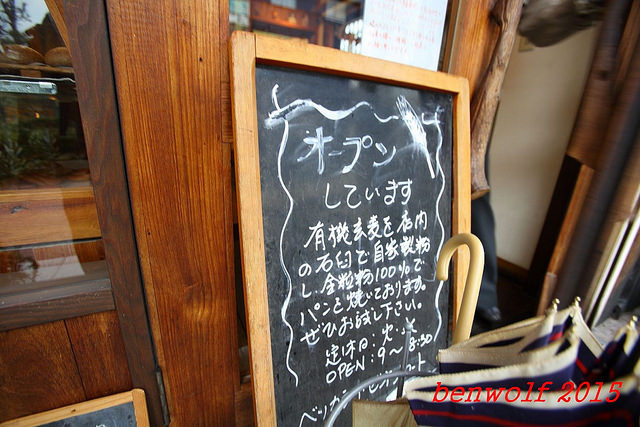 オープン
しています
有機玄麦を店内
の石臼で自家製粉
し、全粒粉100%で
パンを焼いております。
ぜひお試し下さい。
定休日：火・
OPEN：9〜8:30
benwolf 2015